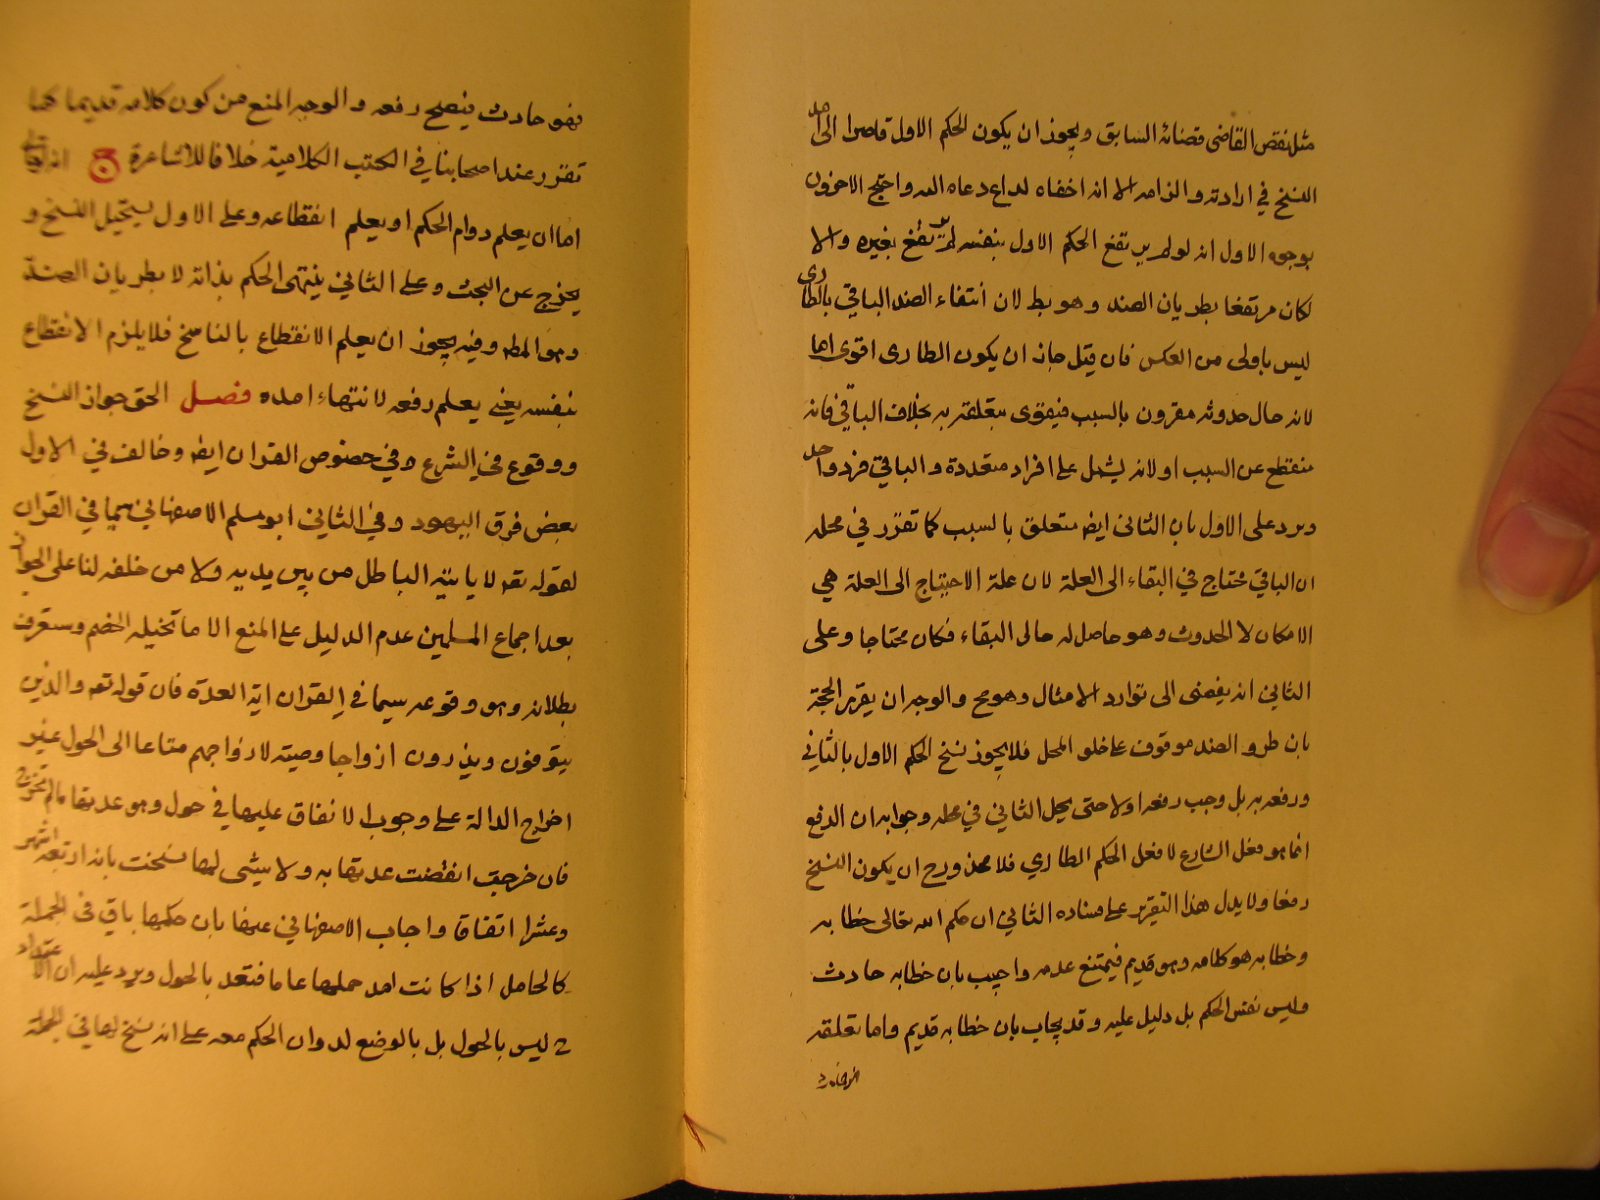 مثل نقض القاضى قضائه السابق ويجوز ان يكون الحكم الاول قاصرا الى احد
النسخ في ارادته والزامه الا انه اخفاه لداع دعاه اليه واحتج الاخرون
بوجوه الاول انه لو لم يرتفع الحكم الاول بنفسه لم يرتفع بغيره والا
لكان مرتفعا بطريان الضد وهو بط لان انتفاء الضد الباقي بالطارى
ليس باولى من العكس فان قيل جاز ان يكون الطارى اقوى اما
لانه حال حدوثه مقرون بالسبب فيقوى بتعلقه به بخلاف الباقي فانه
منقطع عن السبب او لانه يشمل على افراد متعددة والباقي فرد واحد
ويرد على الاول بان الثانى ايض متعلق بالسبب كما تقرر في محله
ان الباقي محتاج في البقاء الى العلة لان علة الاحتياج الى العلة هي
الامكان لا الحدوث وهو حاصل له حالى البقاء فكان محتاجا وعلى
الثاني انه يفضى الى توارد الامثال وهو مح والوجه ان يقرر الحجة
بان طرو الضد موقوف على خلو المحل فلا يجوز نسخ الحكم الاول بالثاني
ورفعه به بل وجب رفعه اولا حتى يحل الثاني في محله وجوابه ان الرفع
انما هو فعل الشارع لا فعل الحكم الطاري فلا محذور ح ان يكون النسخ
رفعا ولا يدل هذا التقرير على فساده الثاني ان حكم الله تعالى خطابه
وخطابه هو كلامه وهو قديم فيمتنع عدمه واجيب بان خطابه حادث
وليس نفس الحكم بل دليل عليه وقد يجاب بان خطابه قديم واما تعلقه
فهو حادث فيصح رفعه والوجه المنع من كون كلامه قديما كما
تقرر عند اصحابنا في الكتب الكلامية خلافا للاشاعرة ج انه تعالى
اما ان يعلم دوام الحكم او يعلم انقطاعه وعلى الاول يستحيل النسخ و
يخرج عن البحث وعلى الثاني ينتهى الحكم بذاته لا بطريان الضد
وهو المط وفيه يجوز ان يعلم الانقطاع بالناسخ فلا يلزم الانقطاع
بنفسه يعني يعلم رفعه لانتهاء امده فصل الحق جواز النسخ
ووقوع في الشرع وفي خصوص القران ايض وخالف في الاول
بعض فرق اليهود وفي الثاني ابو مسلم الاصفهاني سيما في القران
لقوله تع لا ياتيه الباطل من بين يديه ولا من خلفه لنا على الجواز
بعد اجماع المسلمين عدم الدليل على المنع الا ما تخيله الخصم وستعرف
بطلانه وهو وقوعه سيما في القران اية العدة فان قوله تع والذين
يتوفون ويذرون ازواجا وصية لازواجهم متاعا الى الحول غير
اخراج الدالة على وجوب الانفاق عليها في حول وهو عدتها مالم تخرج
فان خرجت انقضت عدتها به ولا شيى لها نسخت باية اربعة اشهر
وعشرا اتفاقا واجاب الاصفهاني عنها بان حكمها باق في الجملة
كالحامل اذا كانت امد حملها عاما فتعتد بالحول ويرد عليه ان الاعتداد
ح ليس بالحول بل بالوضع لدوران الحكم معه على انه نسخ لها في الجملة